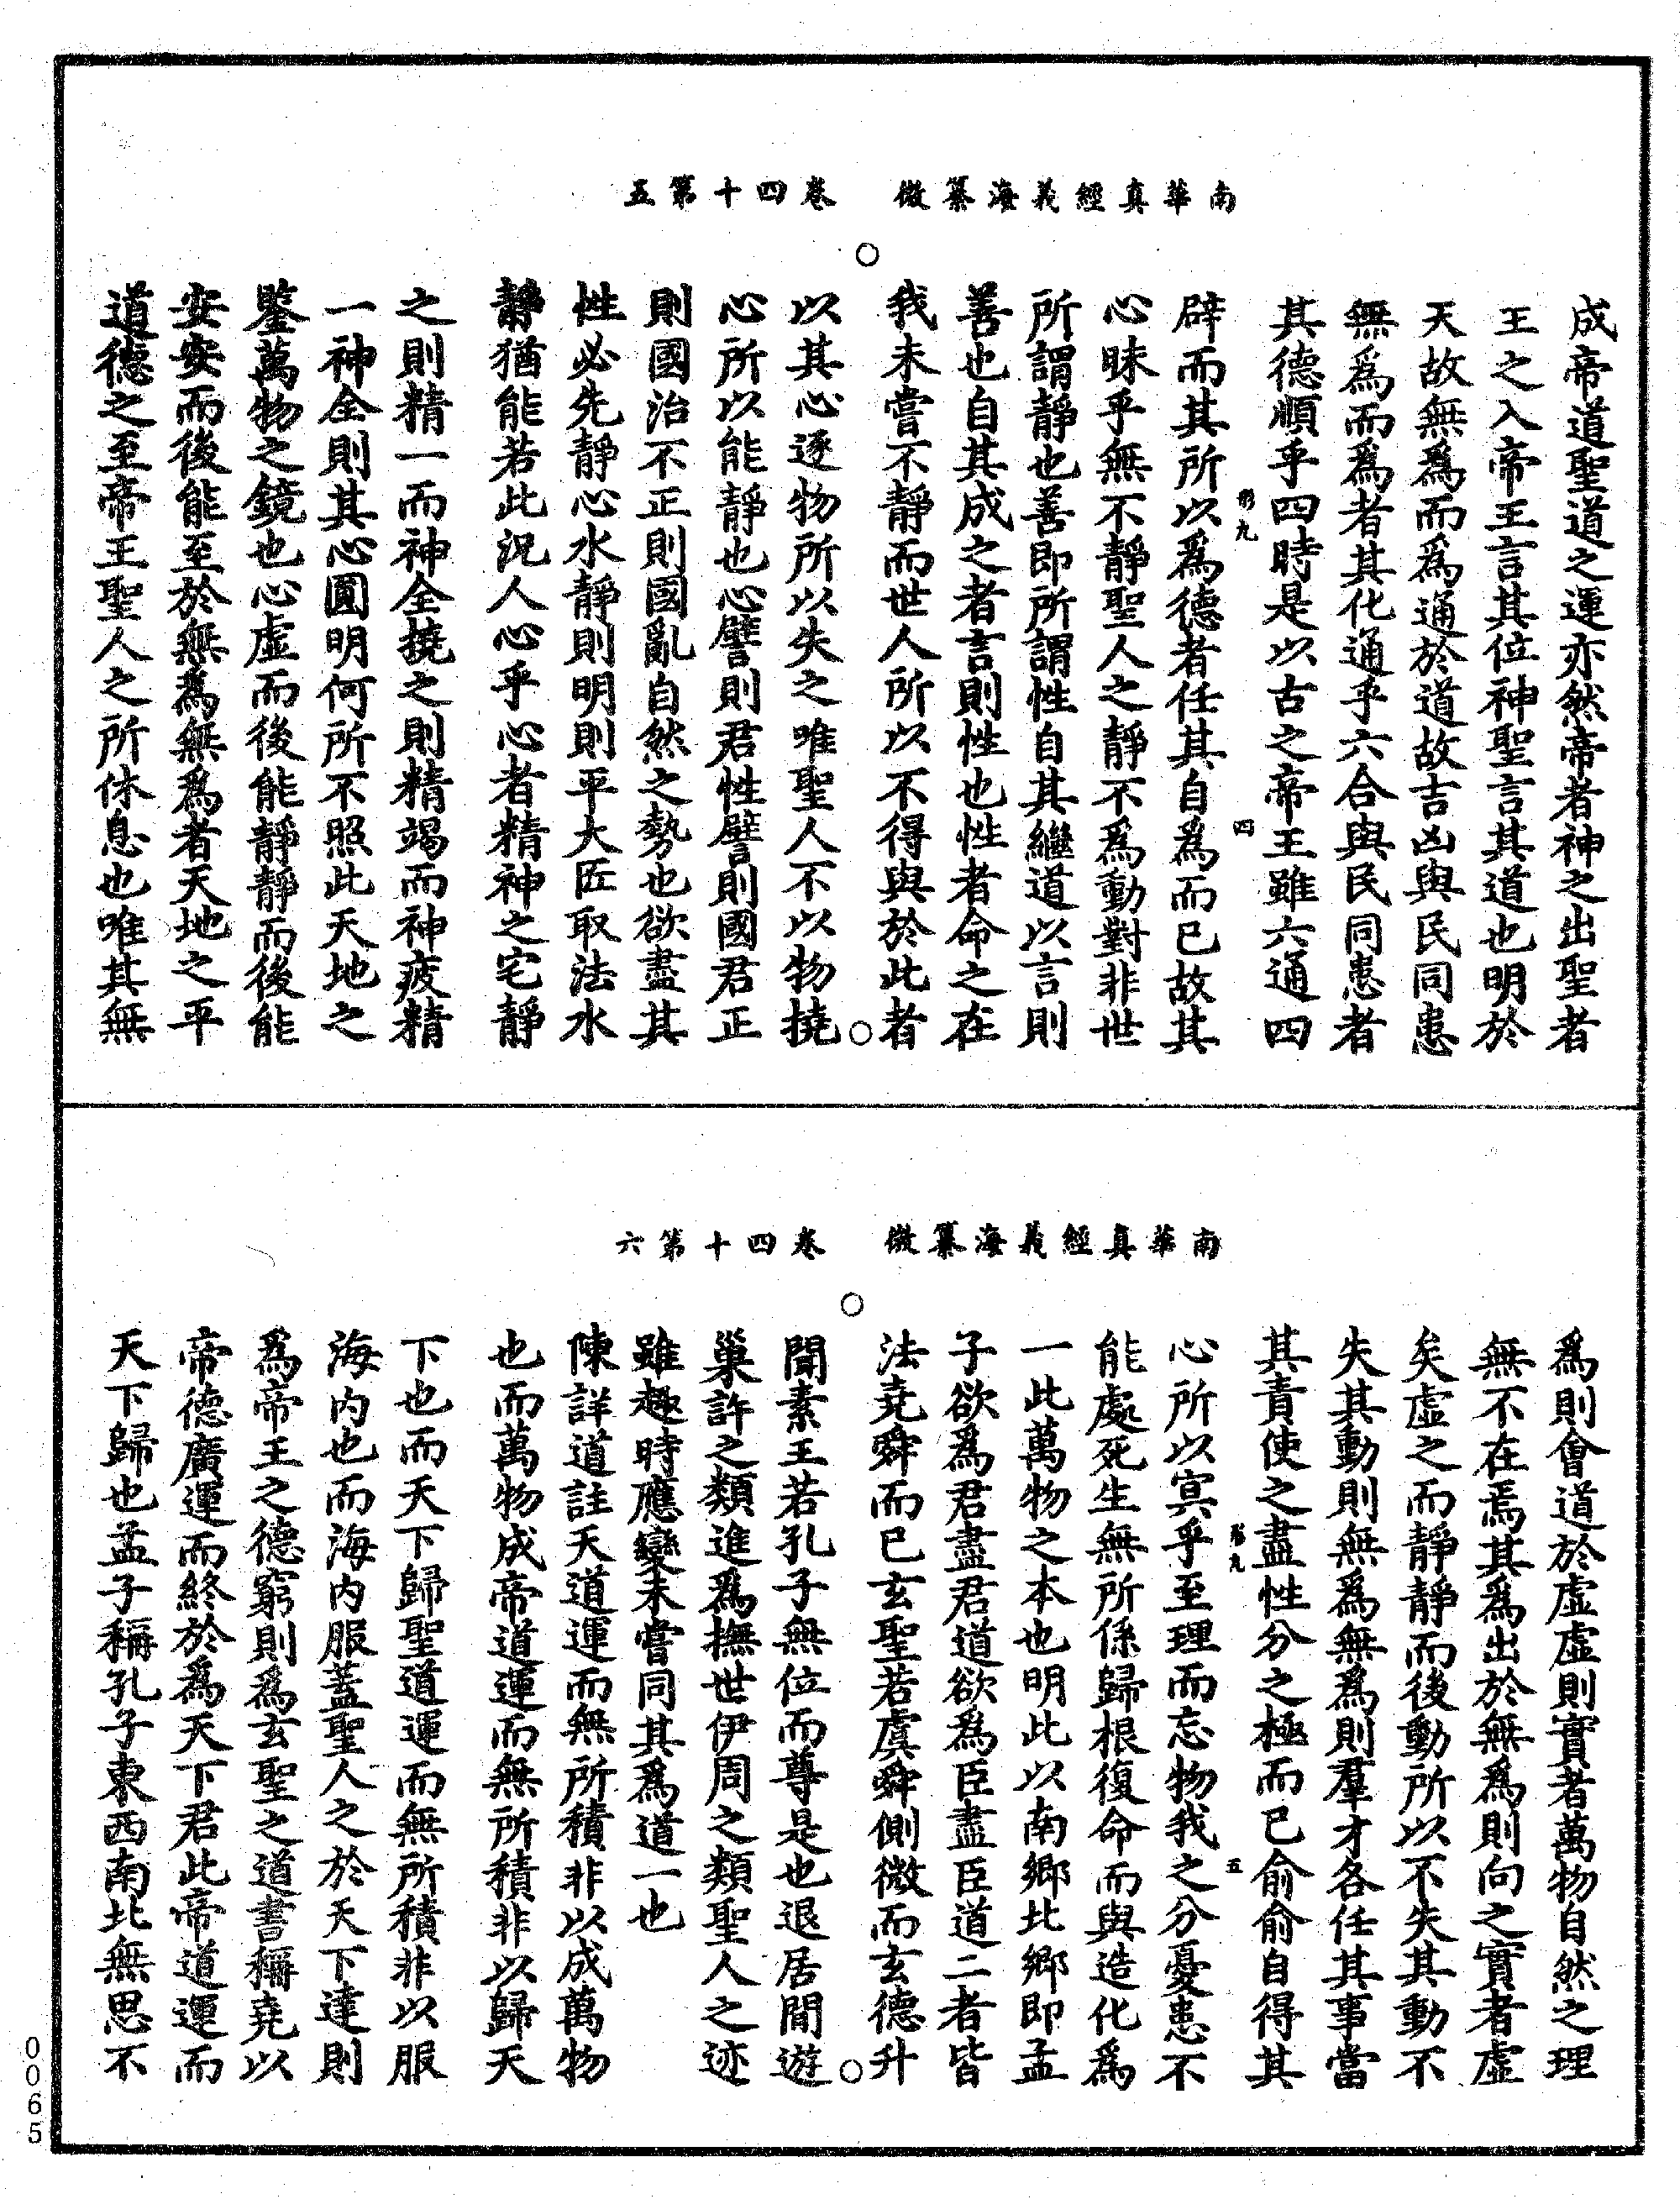 南華真經義海纂微　卷四十第五
成帝道聖道之運亦然帝者神之出聖者
王之入帝王言其位神聖言其道也明於
天故無爲而爲通於道故吉凶與民同患
無爲而爲者其化通乎六合與民同患者
其德順乎四時是以古之帝王雖六通四
辟而其所以爲德者任其自爲而已故其
心昧乎無不靜聖人之靜不爲動對非世
所謂靜也善即所謂性自其繼道以言則
善也自其成之者言則性也性者命之在
我未嘗不靜而世人所以不得與於此者
以其心逐物所以失之唯聖人不以物撓
心所以能靜也心譬則君性譬則國君正
則國治不正則國亂自然之勢也欲盡其
性必先靜心水靜則明則平大匠取法水
靜猶能若此況人心乎心者精神之宅靜
之則精一而神全撓之則精竭而神疲精
一神全則其心圓明何所不照此天地之
鑒萬物之鏡也心虛而後能靜靜而後能
安安而後能至於無爲無爲者天地之平
道德之至帝王聖人之所休息也唯其無
四
南華真經義海纂微　卷四十第六
爲則會道於虛虛則實者萬物自然之理
無不在焉其爲出於無爲則向之實者虛
矣虛之而靜靜而後動所以不失其動不
失其動則無爲無爲則羣才各任其事當
其責使之盡性分之極而已俞俞自得其
心所以冥乎至理而忘物我之分憂患不
能處死生無所係歸根復命而與造化爲
一此萬物之本也明此以南鄉北鄉即孟
子欲爲君盡君道欲爲臣盡臣道二者皆
法堯舜而已玄聖若虞舜側微而玄德升
聞素王若孔子無位而尊是也退居閒遊
巢許之類進爲撫世伊周之類聖人之迹
雖趣時應變未嘗同其爲道一也
陳詳道註天道運而無所積非以成萬物
也而萬物成帝道運而無所積非以歸天
下也而天下歸聖道運而無所積非以服
海内也而海内服蓋聖人之於天下達則
爲帝王之德窮則爲玄聖之道書稱堯以
帝德廣運而終於爲天下君此帝道運而
天下歸也孟子稱孔子東西南北無思不
五
0065